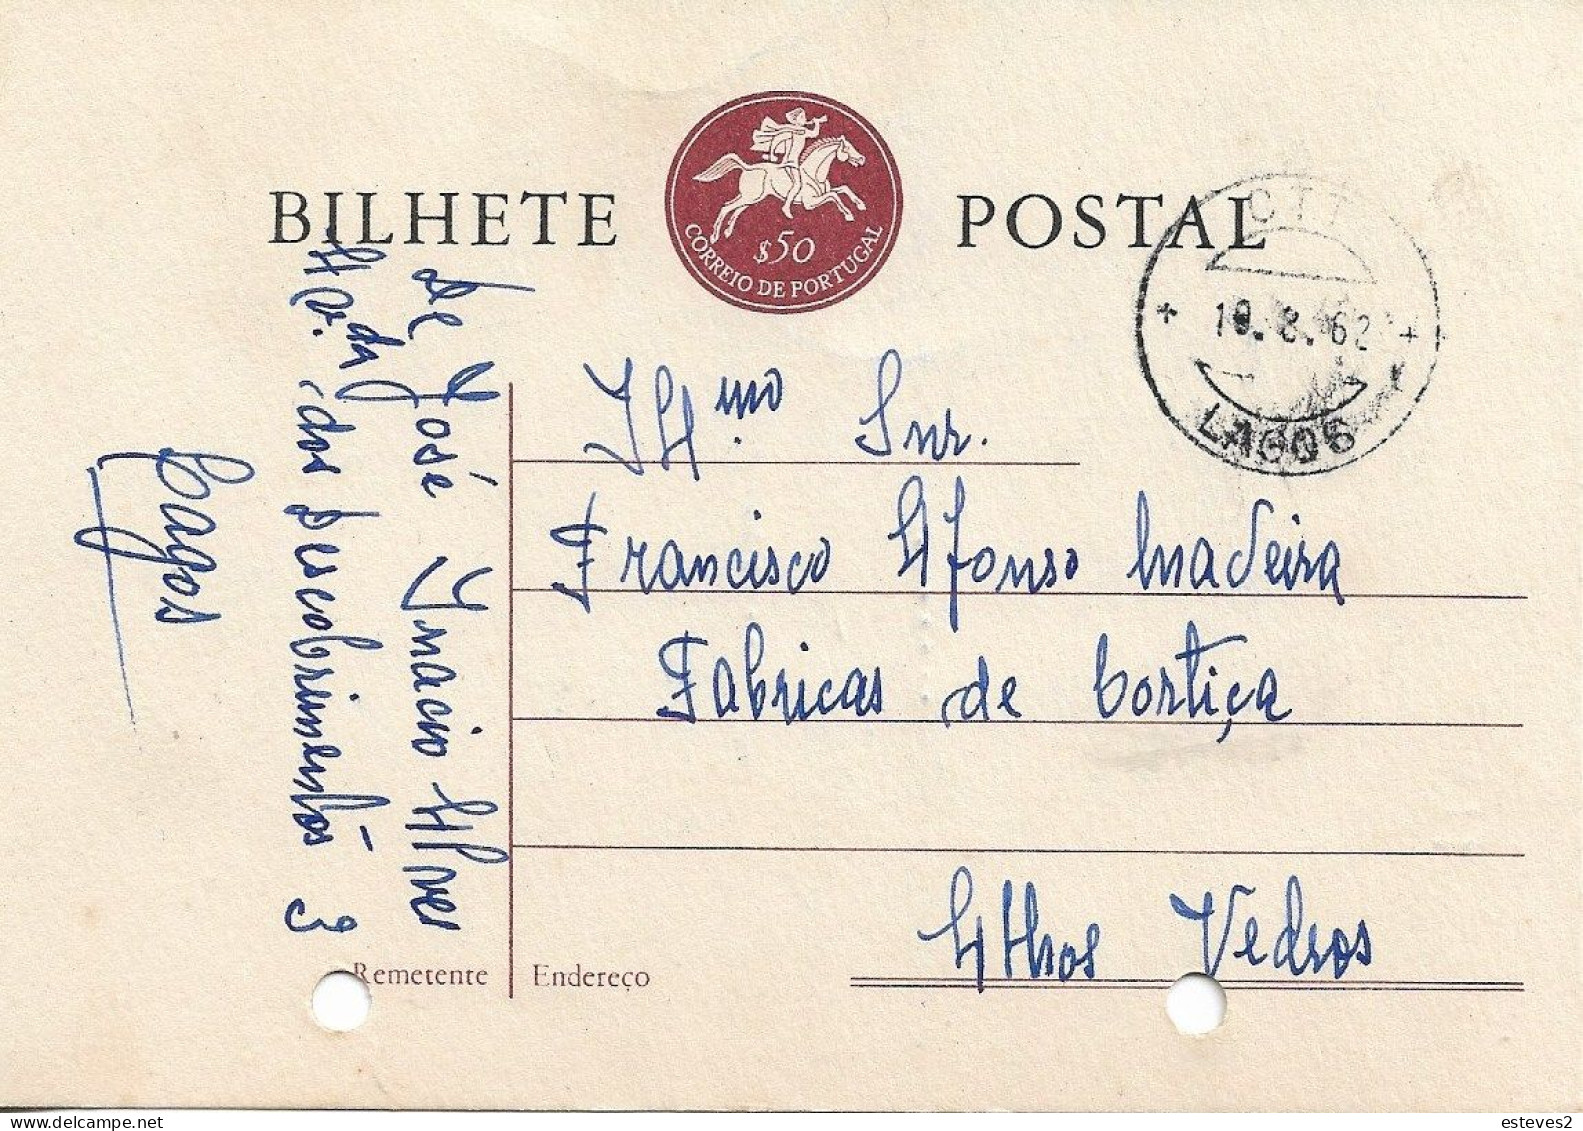 BILHETE POSTAL
$50
CORREIO DE PORTUGAL
CTT
10.8.62
LAGOS
Illmo. Snr.
Francisco Afonso Madeira
Fabricas de Cortiça
Alhos Vedros
Remetente
Endereço
de José Inacio Alves
Av. da dos Descobrimentos 3
Lagos
esteves2